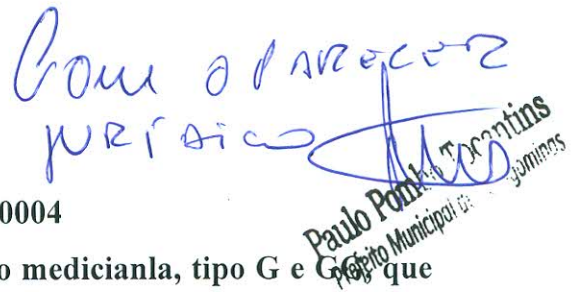 Com o PARECER
JURÍDICO
Paulo Pombo Tocantins
Prefeito Municipal de Paragominas
0004
o medicianla, tipo G e GG, que